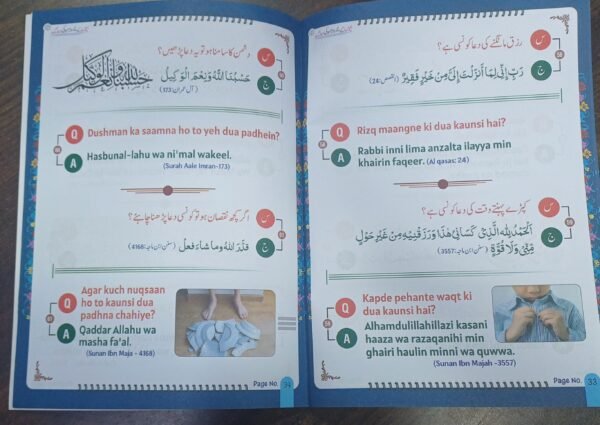 رزق مانگنے کی دعا کونسی ہے؟
س
ج
رَبِّ إِنِّي لِمَا أَنزَلْتَ إِلَيَّ مِنْ خَيْرٍ فَقِيرٌ (القصص:24)
Q
Rizq maangne ki dua kaunsi hai?
A
Rabbi inni lima anzalta ilayya min
khairin faqeer. (Al qasas: 24)
کپڑے پہنتے وقت کی دعا کونسی ہے؟
س
ج
اَلْحَمْدُ لِلّٰهِ الَّذِيْ كَسَانِيْ هٰذَا وَرَزَقَنِيْهِ مِنْ غَيْرِ حَوْلٍ
مِنِّيْ وَلَا قُوَّةٍ (سنن ابن ماجہ:3557)
Q
Kapde pehante waqt ki
dua kaunsi hai?
A
Alhamdulillahillazi kasani
haaza wa razaqanihi min
ghairi haulin minni wa quwwa.
(Sunan Ibn Majah -3557)
Page No. 33
دشمن کا سامنا ہو تو یہ دعا پڑھیں؟
س
ج
حَسْبُنَا اللّٰهُ وَنِعْمَ الْوَكِيْلُ
(آل عمران:173)
Q
Dushman ka saamna ho to yeh dua padhein?
A
Hasbunal-lahu wa ni'mal wakeel.
(Surah Aale Imran-173)
اگر کچھ نقصان ہو تو کونسی دعا پڑھنا چاہئے؟
س
ج
قَدَّرَ اللّٰهُ وَمَا شَاءَ فَعَلَ (سنن ابن ماجہ:4168)
Q
Agar kuch nuqsaan
ho to kaunsi dua
padhna chahiye?
A
Qaddar Allahu wa
masha fa'al.
(Sunan Ibn Maja - 4168)
Page No. 34